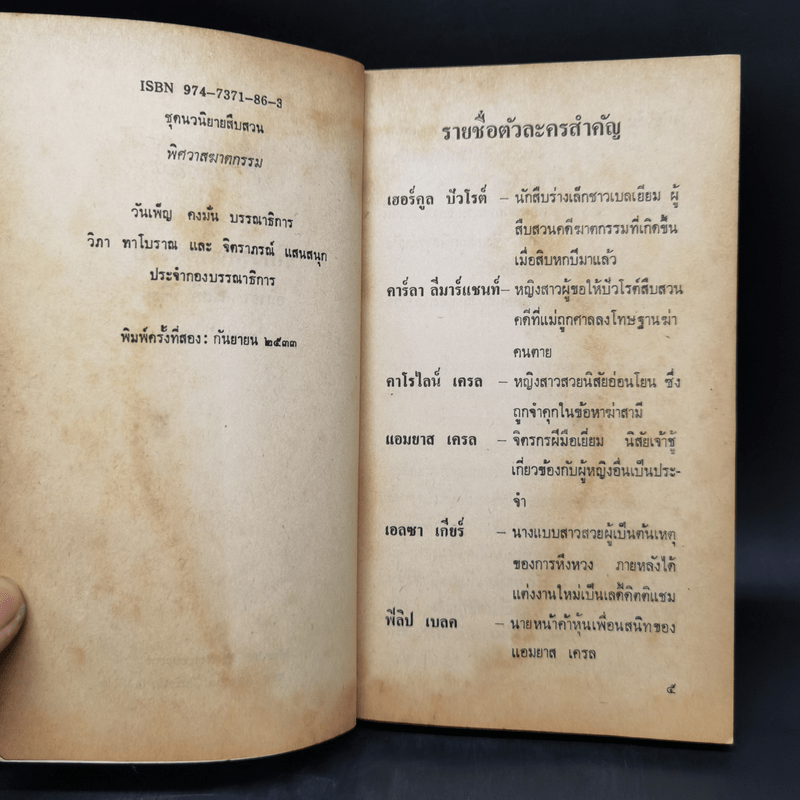 ISBN 974-7371-86-3
ชุดนวนิยายสืบสวน
พิศวาสฆาตกรรม
วันเพ็ญ คงมั่น บรรณาธิการ
วิภา ทาโบราณ และ จิตราภรณ์ แสนสนุก
ประจำกองบรรณาธิการ
พิมพ์ครั้งที่สอง : กันยายน ๒๕๓๓
รายชื่อตัวละครสำคัญ
เฮอร์คูล ปัวโรต์ – นักสืบร่างเล็กชาวเบลเยียม ผู้
สืบสวนคดีฆาตกรรมที่เกิดขึ้น
เมื่อสิบหกปีมาแล้ว
คาร์ลา ลีมาร์แชนท์ – หญิงสาวผู้ขอให้ปัวโรต์สืบสวน
คดีที่แม่ถูกศาลลงโทษฐานฆ่า
คนตาย
คาโรไลน์ เครล – หญิงสาวสวยนิสัยอ่อนโยน ซึ่ง
ถูกจำคุกในข้อหาฆ่าสามี
แอมยาส เครล – จิตรกรฝีมือเยี่ยม นิสัยเจ้าชู้
เกี่ยวข้องกับผู้หญิงอื่นเป็นประ-
จำ
เอลซา เกียร์ – นางแบบสาวสวยผู้เป็นต้นเหตุ
ของการหึงหวง ภายหลังได้
แต่งงานใหม่เป็นเลดี้ดิตติแชม
ฟิลิป เบลค – นายหน้าค้าหุ้นเพื่อนสนิทของ
แอมยาส เครล
๕